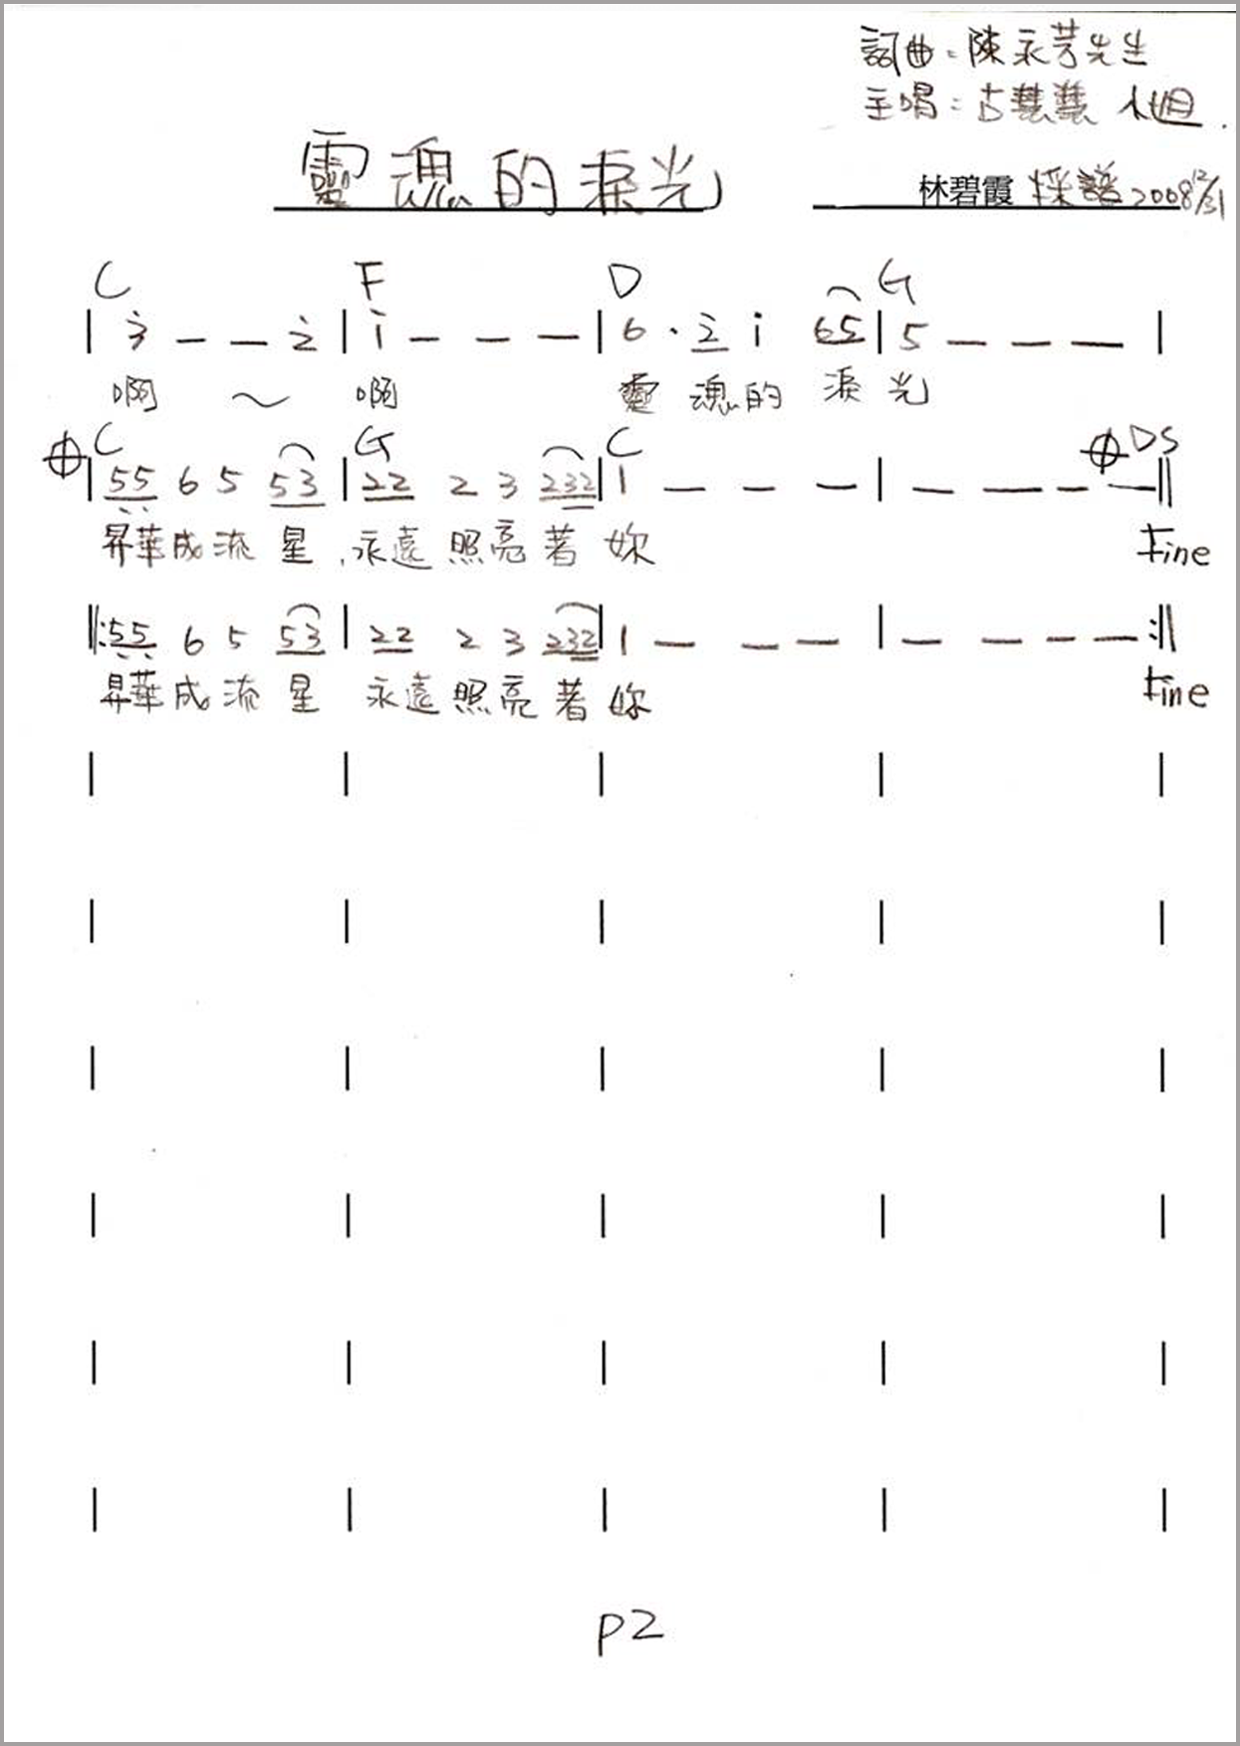 詞曲：陳永芳先生
主唱：古慧慧 小姐.
靈魂的淚光
林碧霞 採譜 2008 12/31
C F D G
| 3̇ — — 2̇ | 1̇ — — — | 6 · 2̇ 1̇ 65 | 5 — — — |
啊 ～ 啊 靈魂的 淚光
C G C DS
| 55 6 5 53 | 22 2 3 232 | 1 — — — | — — — — ||
昇華成流星 永遠照亮著妳 Fine
||: 55 6 5 53 | 22 2 3 232 | 1 — — — | — — — — :||
昇華成流星 永遠照亮著妳 Fine
P2